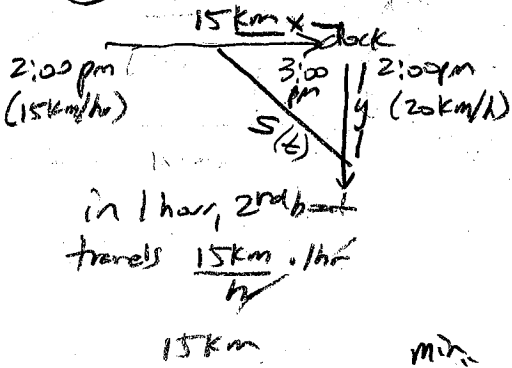 15km x dock
2:00pm 3:00 2:00pm
(15km/hr) pm y (20km/h)
S(t)
in 1 hour, 2nd boat
travels 15km/h . 1hr
15km min.